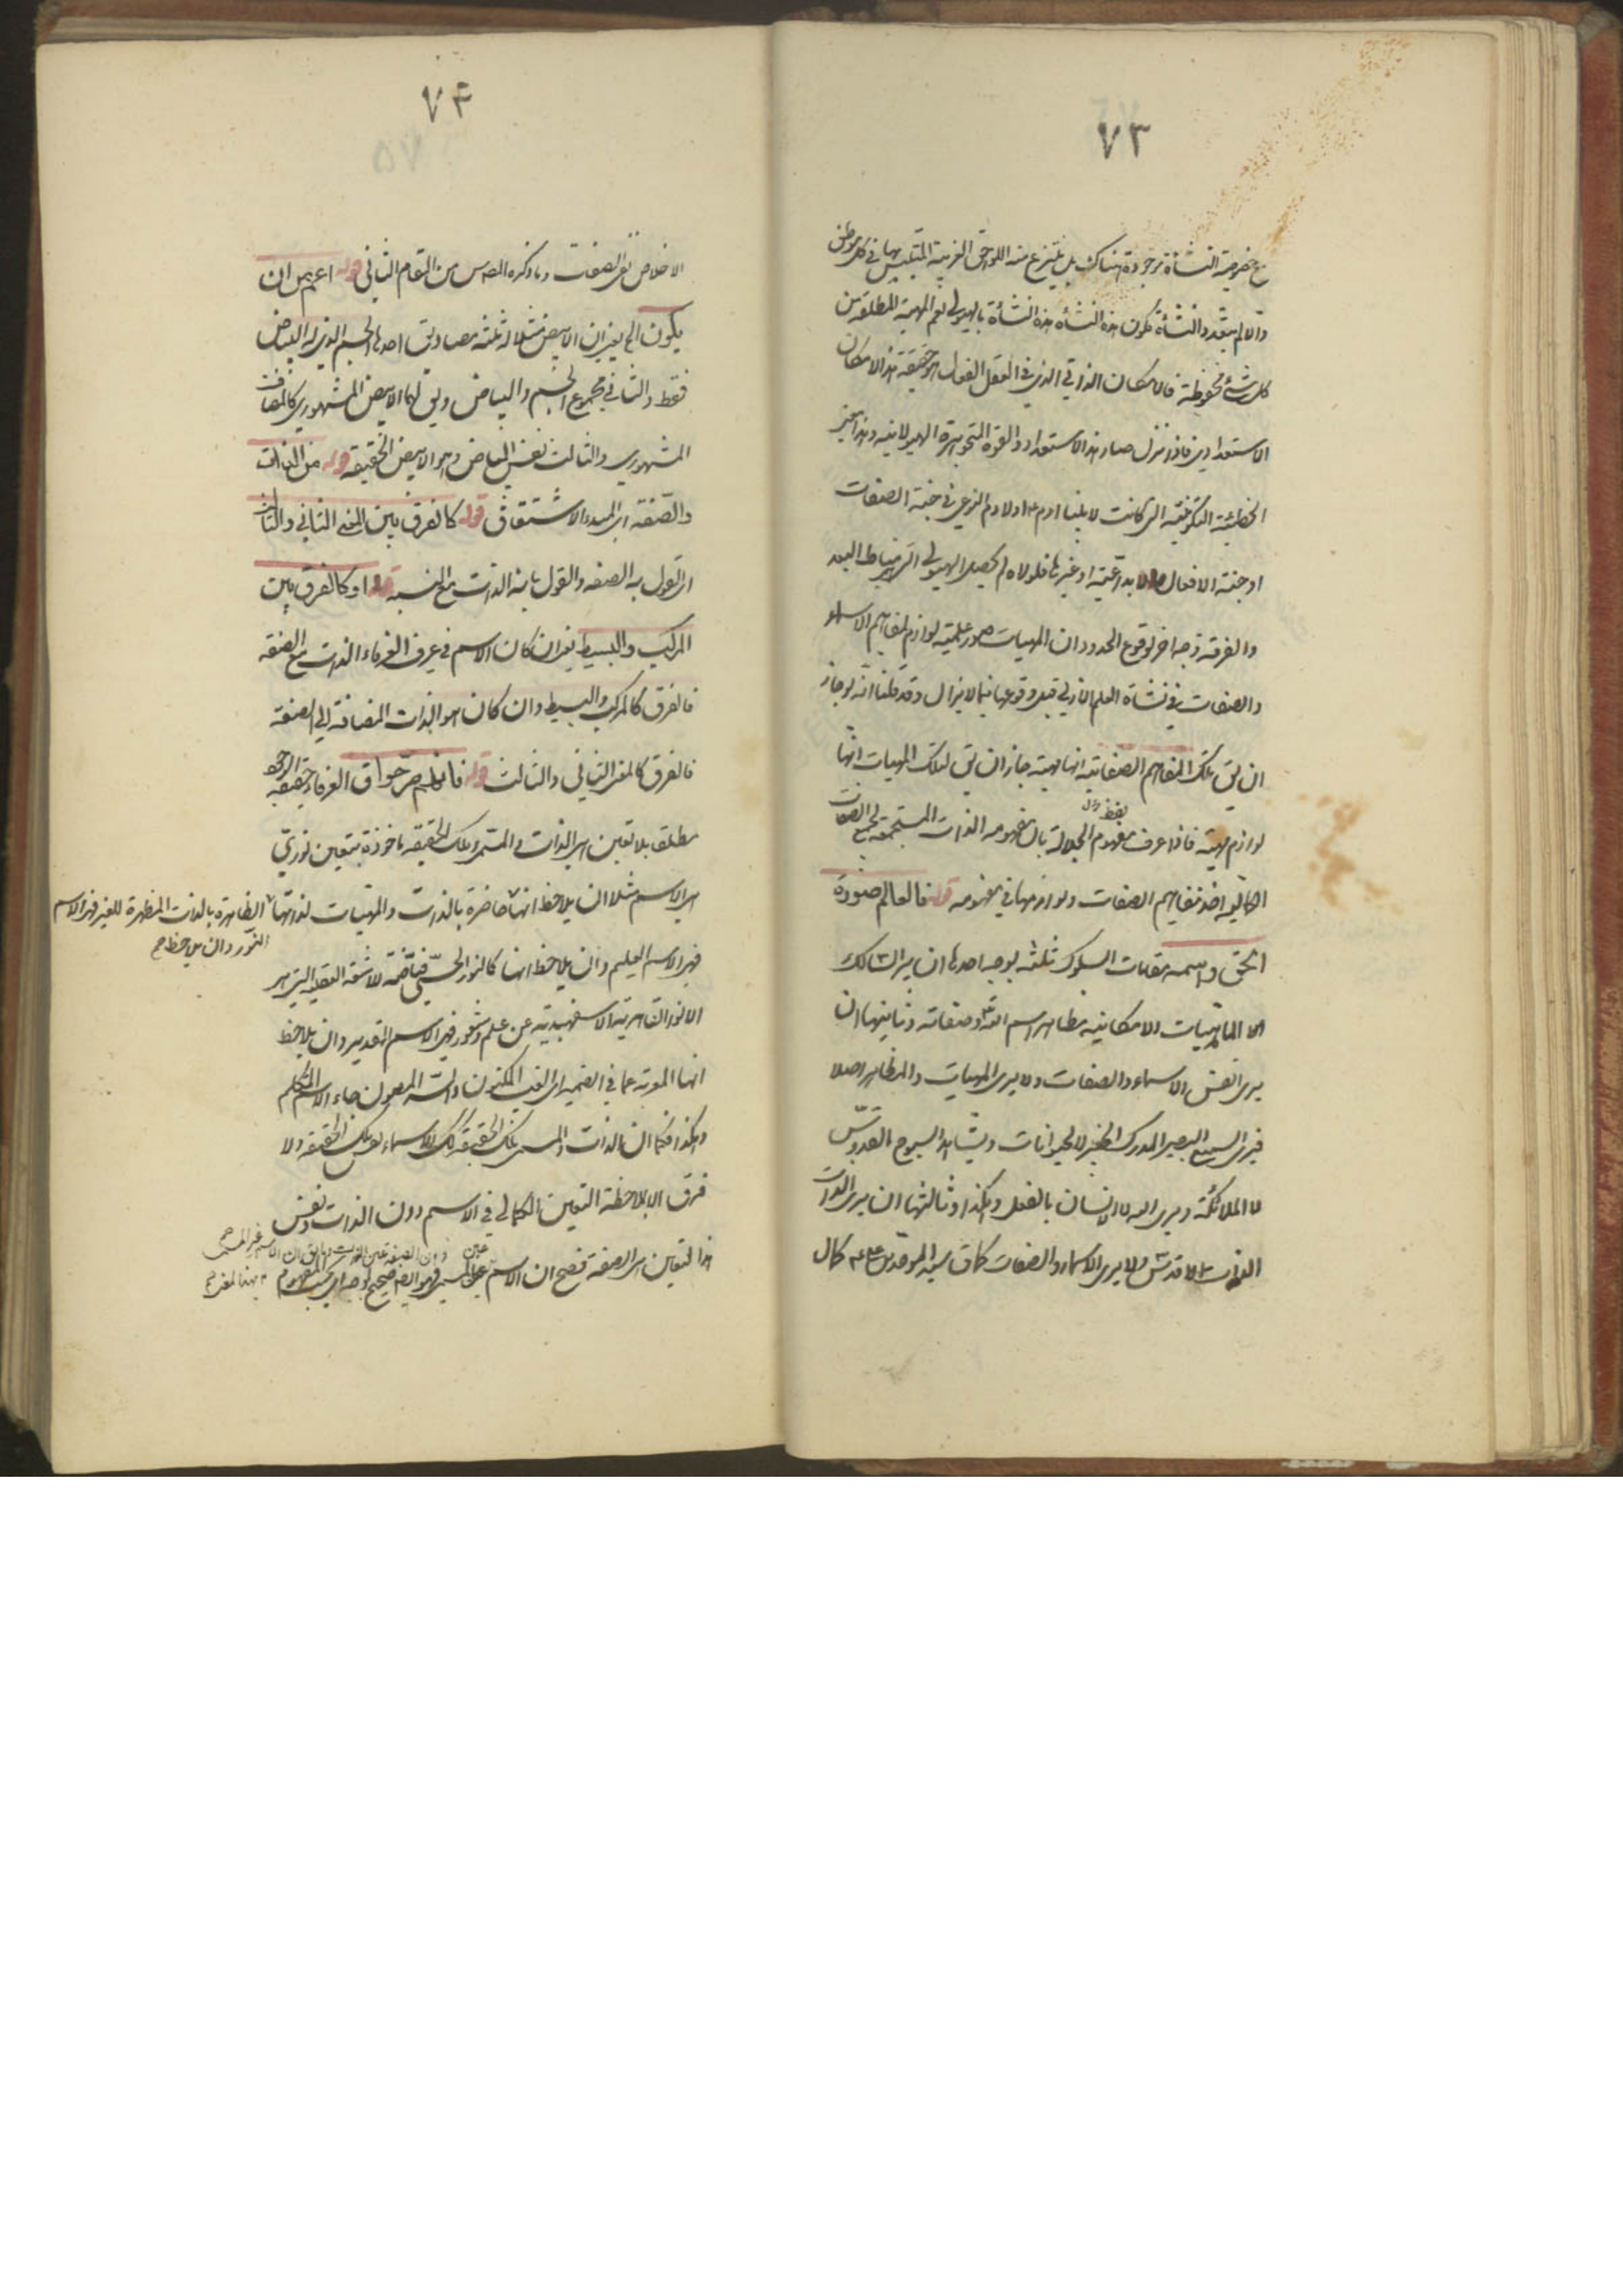 ٧٣
مع خصوصية النشأة موجودة هناك بل ينتزع منه اللواحق الغريبة المتلبس بها في كل موطن
والا لم يتعدد النشأة فكون هذه النشأة هذه النشأة بالهيولى نعم المهية المطلقة من
كل شئ محفوظة فالامكان الذاتي الذي في العقل الفعال هو حقيقة هذا الامكان
الاستعدادي فاذا تنزل صار هذا الاستعداد والقوة الهيولانية وهذا
الخطيئة التكوينية التي كانت لابينا ادم ع اولادم النوعي في جنة الصفات
او جنة الافعال الابداعية او غيرها فلولاه لم يحصل الهيولى التي هي مناط البعد
والفرقة وجه اخر لوقوع الحدود ان المهيات صور علمية لوازم لمفاهيم الاسماء
والصفات في نشأة العلم الازلي قبل وقوعها فيما لا يزال وقد قلنا انه لو جاز
ان يق تلك المفاهيم الصفاتية انها مهية جاز ان يق لتلك المهيات انها
لوازم مهية فاذا عرف مفهوم لفظ الجلالة بان مفهومه الذات المستجمعة لجميع الصفات
الكمالية اخذ مفاهيم الصفات ولوازمها في مفهومه قوله فالعالم صورة
الحق واسمه مقامات السلوك ثلثة بوجه احدها ان يرى السالك
الماهيات الامكانية مظاهر اسم الله وصفاته وثانيها ان
يرى نفس الاسماء والصفات ولا يرى المهيات والمظاهر اصلا
فيرى السميع البصير المدرك الخبير لا الحيوانات ويشاهد السبوح القدوس
لا الملائكة ويرى الله لا الانسان بالفعل وهكذا وثالثها ان يرى الذات
الذات الاقدس ولا يرى الاسماء والصفات كما ق سيد الموحدين ع كمال
٧٤
الاخلاص نفى الصفات وما ذكره المص س من المقام الثاني قوله اعم من ان
يكون الخ يعني ان الابيض مثلا له ثلثة مصاديق احدها الجسم الذي له البياض
فقط والثاني مجموع الجسم والبياض ويق لهما الابيض المشهوري كالمضاف
المشهوري والثالث نفس البياض وهو الابيض الحقيقة قوله من الذات
والصفة اى المبدء الاشتقاق قوله كالفرق بين المعنى الثاني والثالث
اى القول بالصفه والقول بانه الذات مع النسبه قوله او كالفرق بين
المركب والبسيط يعني ان كان الاسم في عرف العرفاء الذات مع الصفة
فالفرق كالمركب والبسيط وان كان هو الذات المضافة الى الصفة
فالفرق كالمعنى الثاني والثالث قوله فانهم صرحوا ق العرفاء حقيقة الوجود
مطلقا بلا تعين هى الذات والمسمى وتلك الحقيقة ماخوذة بتعين نوري
هى الاسم مثلا ان يلاحظ انها حاضرة بالذات والمهيات لذاتها
الظاهرة بالذات المظهرة للغير فهى الاسم
النور وان يلاحظ صح
فهى الاسم العليم وان يلاحظ انها كالنور الحسي فياضة للاشعة العقلية التي هى
الانوار القاهرية الاسفهبدية عن علم وشعور فهى الاسم القدير وان يلاحظ
انها المعربة عما في الضمير اى الغيب المكنون والسر المصون جاء الاسم المتكلم
وهكذا فكما ان الذات والمسمى تلك الحقيقة كك الاسماء نفس تلك الحقيقة ولا
فرق الا بملاحظة التعين الكمالي في الاسم دون الذات ونفس
هذا التعين هى الصفة فصح ان الاسم عين المسمى
دون الصفة عين الذات وما يق ان الاسم غير المسمى صح
فهو ايضا صحيح بوجه اى بحسب المفهوم